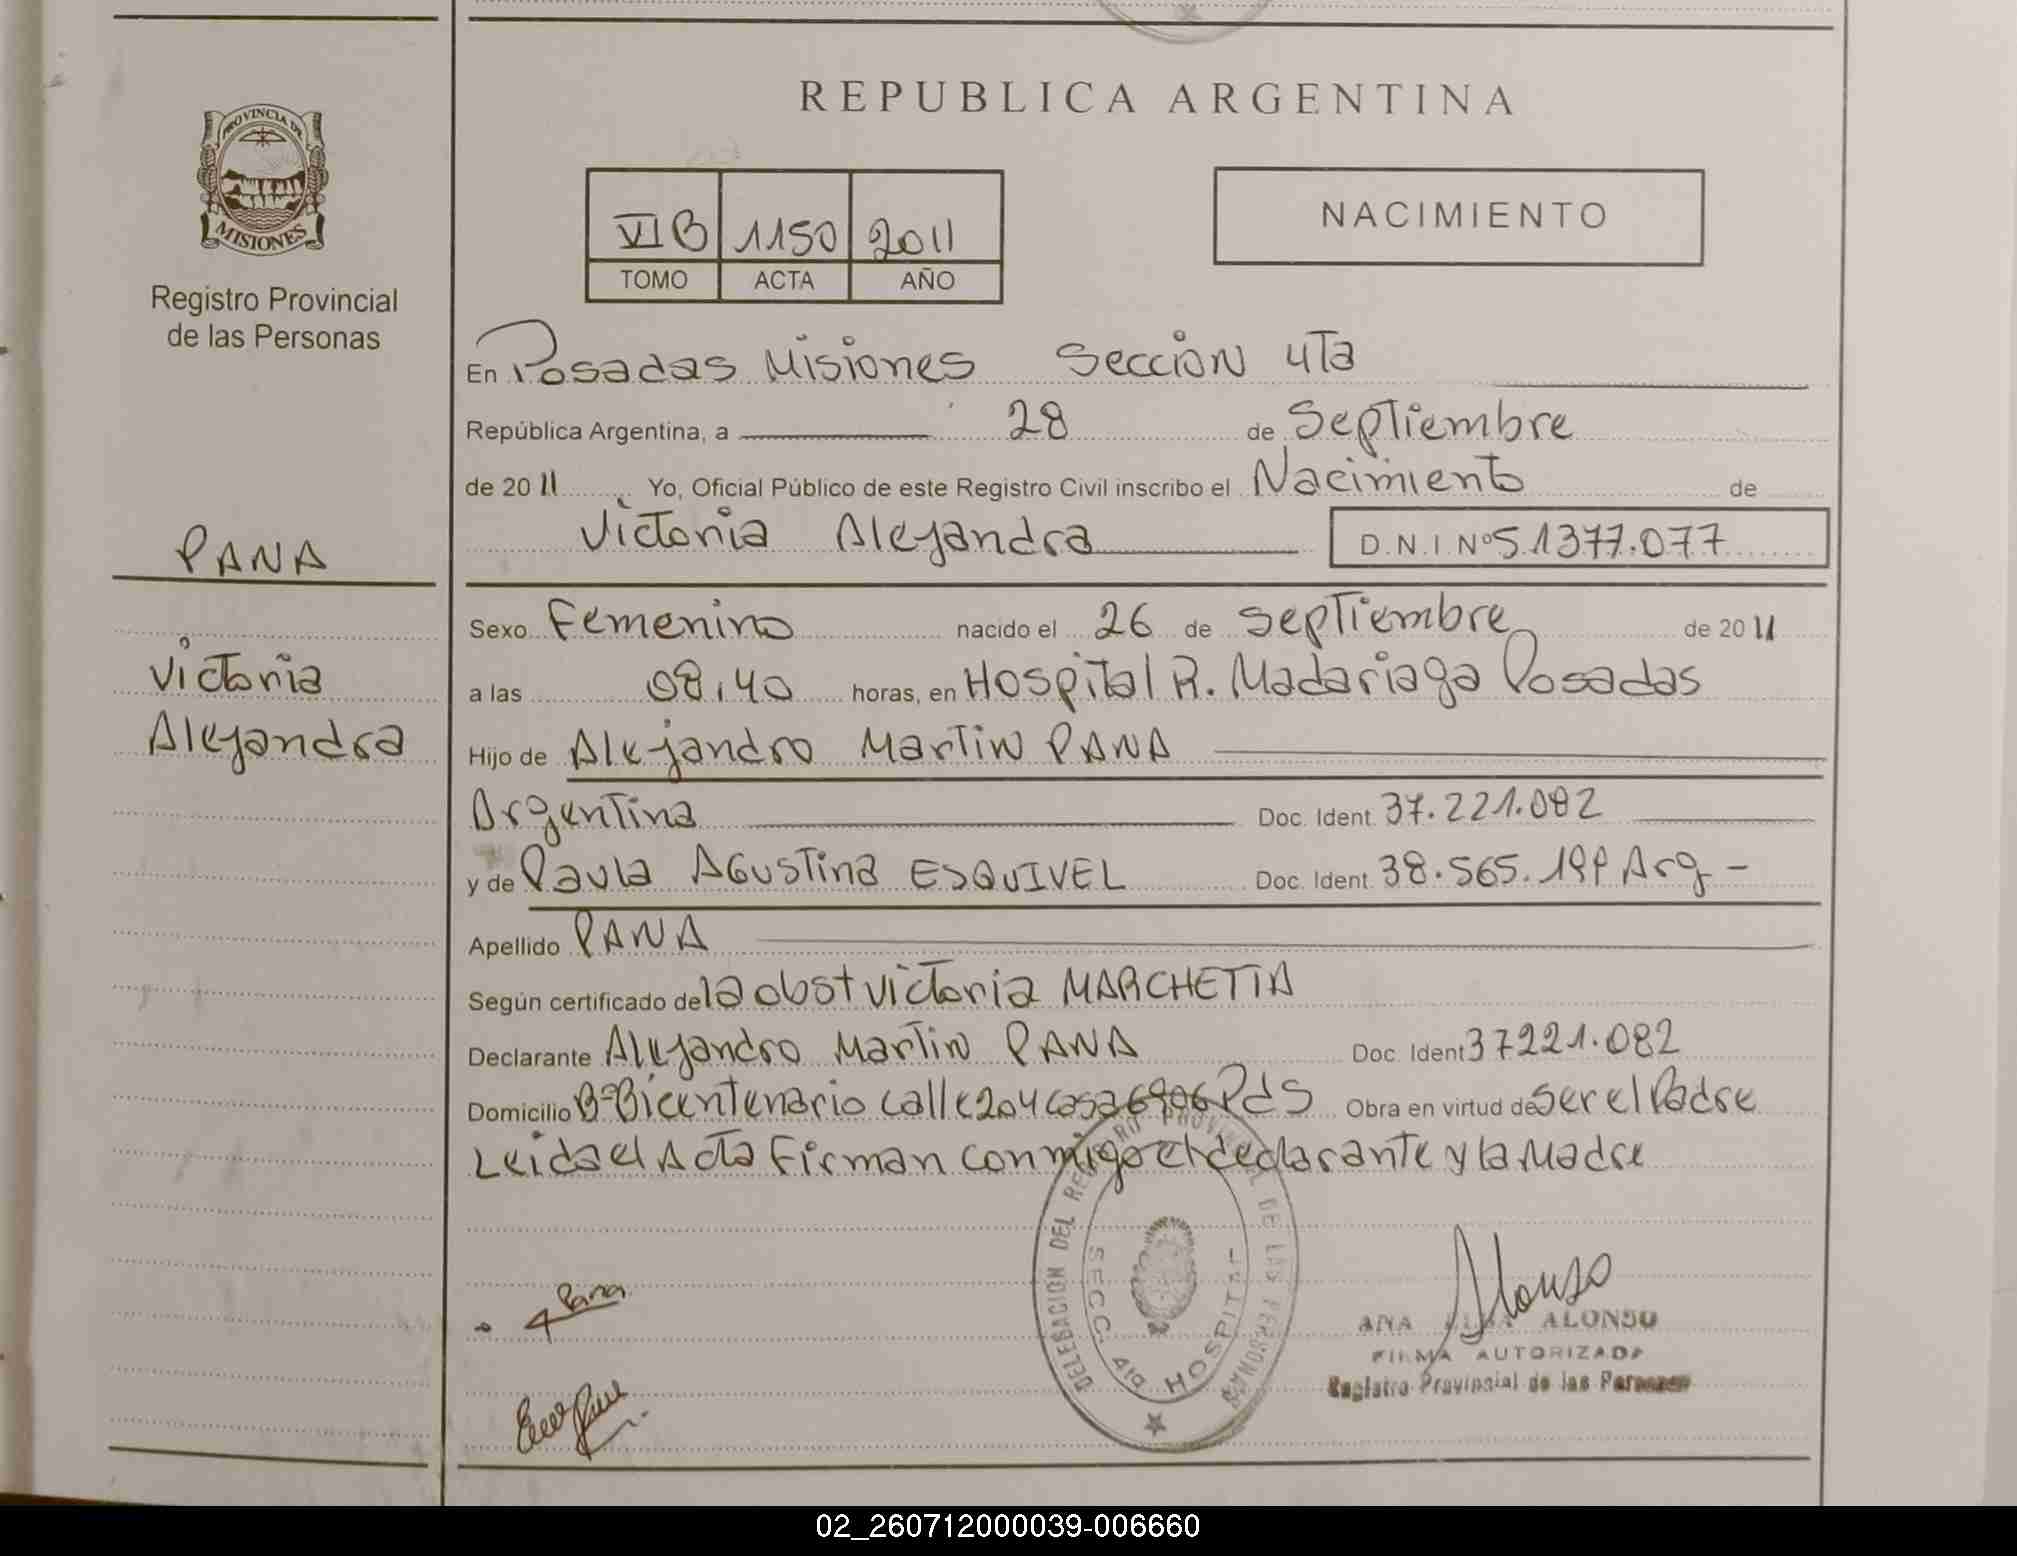 PROVINCIA DE
MISIONES
Registro Provincial
de las Personas
PANA
Victoria
Alejandra
REPUBLICA ARGENTINA
VI B 1150 2011
TOMO ACTA AÑO
NACIMIENTO
En Posadas Misiones Sección 4Ta
República Argentina, a 28 de Septiembre
de 2011 Yo, Oficial Público de este Registro Civil inscribo el Nacimiento de
Victoria Alejandra D.N.I. Nº 51377.077
Sexo Femenino nacido el 26 de Septiembre de 2011
a las 08,40 horas, en Hospital R. Madariaga Posadas
Hijo de Alejandro Martin PANA
Argentina Doc. Ident. 37.221.082
y de Paula Agustina ESQUIVEL Doc. Ident. 38.565. Arg -
Apellido PANA
Según certificado de la obst Victoria MARCHETTA
Declarante Alejandro Martin PANA Doc. Ident 37221.082
Domicilio Bº Bicentenario calle 204 casa 6906 Pds Obra en virtud de ser el Padre
Leida el Acta Firman conmigo el declarante y la Madre
Pana
DELEGACION DEL REGISTRO PROVINCIAL DE LAS PERSONAS
SECC. 4ta HOSPITAL
Alonso
ANA ALONSO
FIRMA AUTORIZADA
Registro Provincial de las Personas
02_260712000039-006660